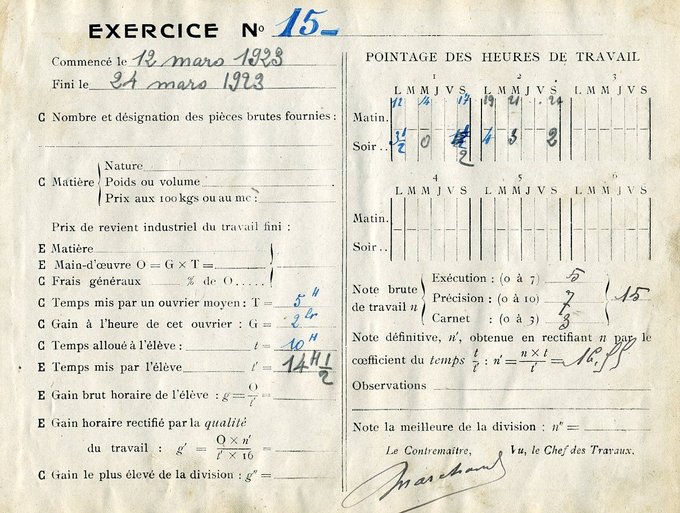 EXERCICE No 15
Commencé le 12 mars 1923
Fini le 24 mars 1923
C Nombre et désignation des pièces brutes fournies :
C Matière
Nature
Poids ou volume
Prix aux 100 kgs ou au mc :
Prix de revient industriel du travail fini :
E Matière
E Main-d'œuvre O = G × T =
C Frais généraux % de O
C Temps mis par un ouvrier moyen : T = 5 H
C Gain à l'heure de cet ouvrier : G = 2
C Temps alloué à l'élève : t = 10 H
E Temps mis par l'élève t' = 14 H 1/2
E Gain brut horaire de l'élève : g = O/t' =
E Gain horaire rectifié par la qualité
du travail : g' = O × n' / t' × 16 =
C Gain le plus élevé de la division : g" =
POINTAGE DES HEURES DE TRAVAIL
1 2 3
L M M J V S L M M J V S L M M J V S
12 14 17 19 21 24
Matin.
Soir .. 3 1/2 0 2 4 3 2
4 5 6
L M M J V S L M M J V S L M M J V S
Matin.
Soir ..
Note brute de travail n
Exécution : (0 à 7) 5
Précision : (0 à 10) 7
Carnet : (0 à 3) 3
15
Note définitive, n', obtenue en rectifiant n par le
coefficient du temps t/t' : n' = n × t / t' = 16,55
Observations
Note la meilleure de la division : n" =
Le Contremaître, Vu, le Chef des Travaux.
Marchand